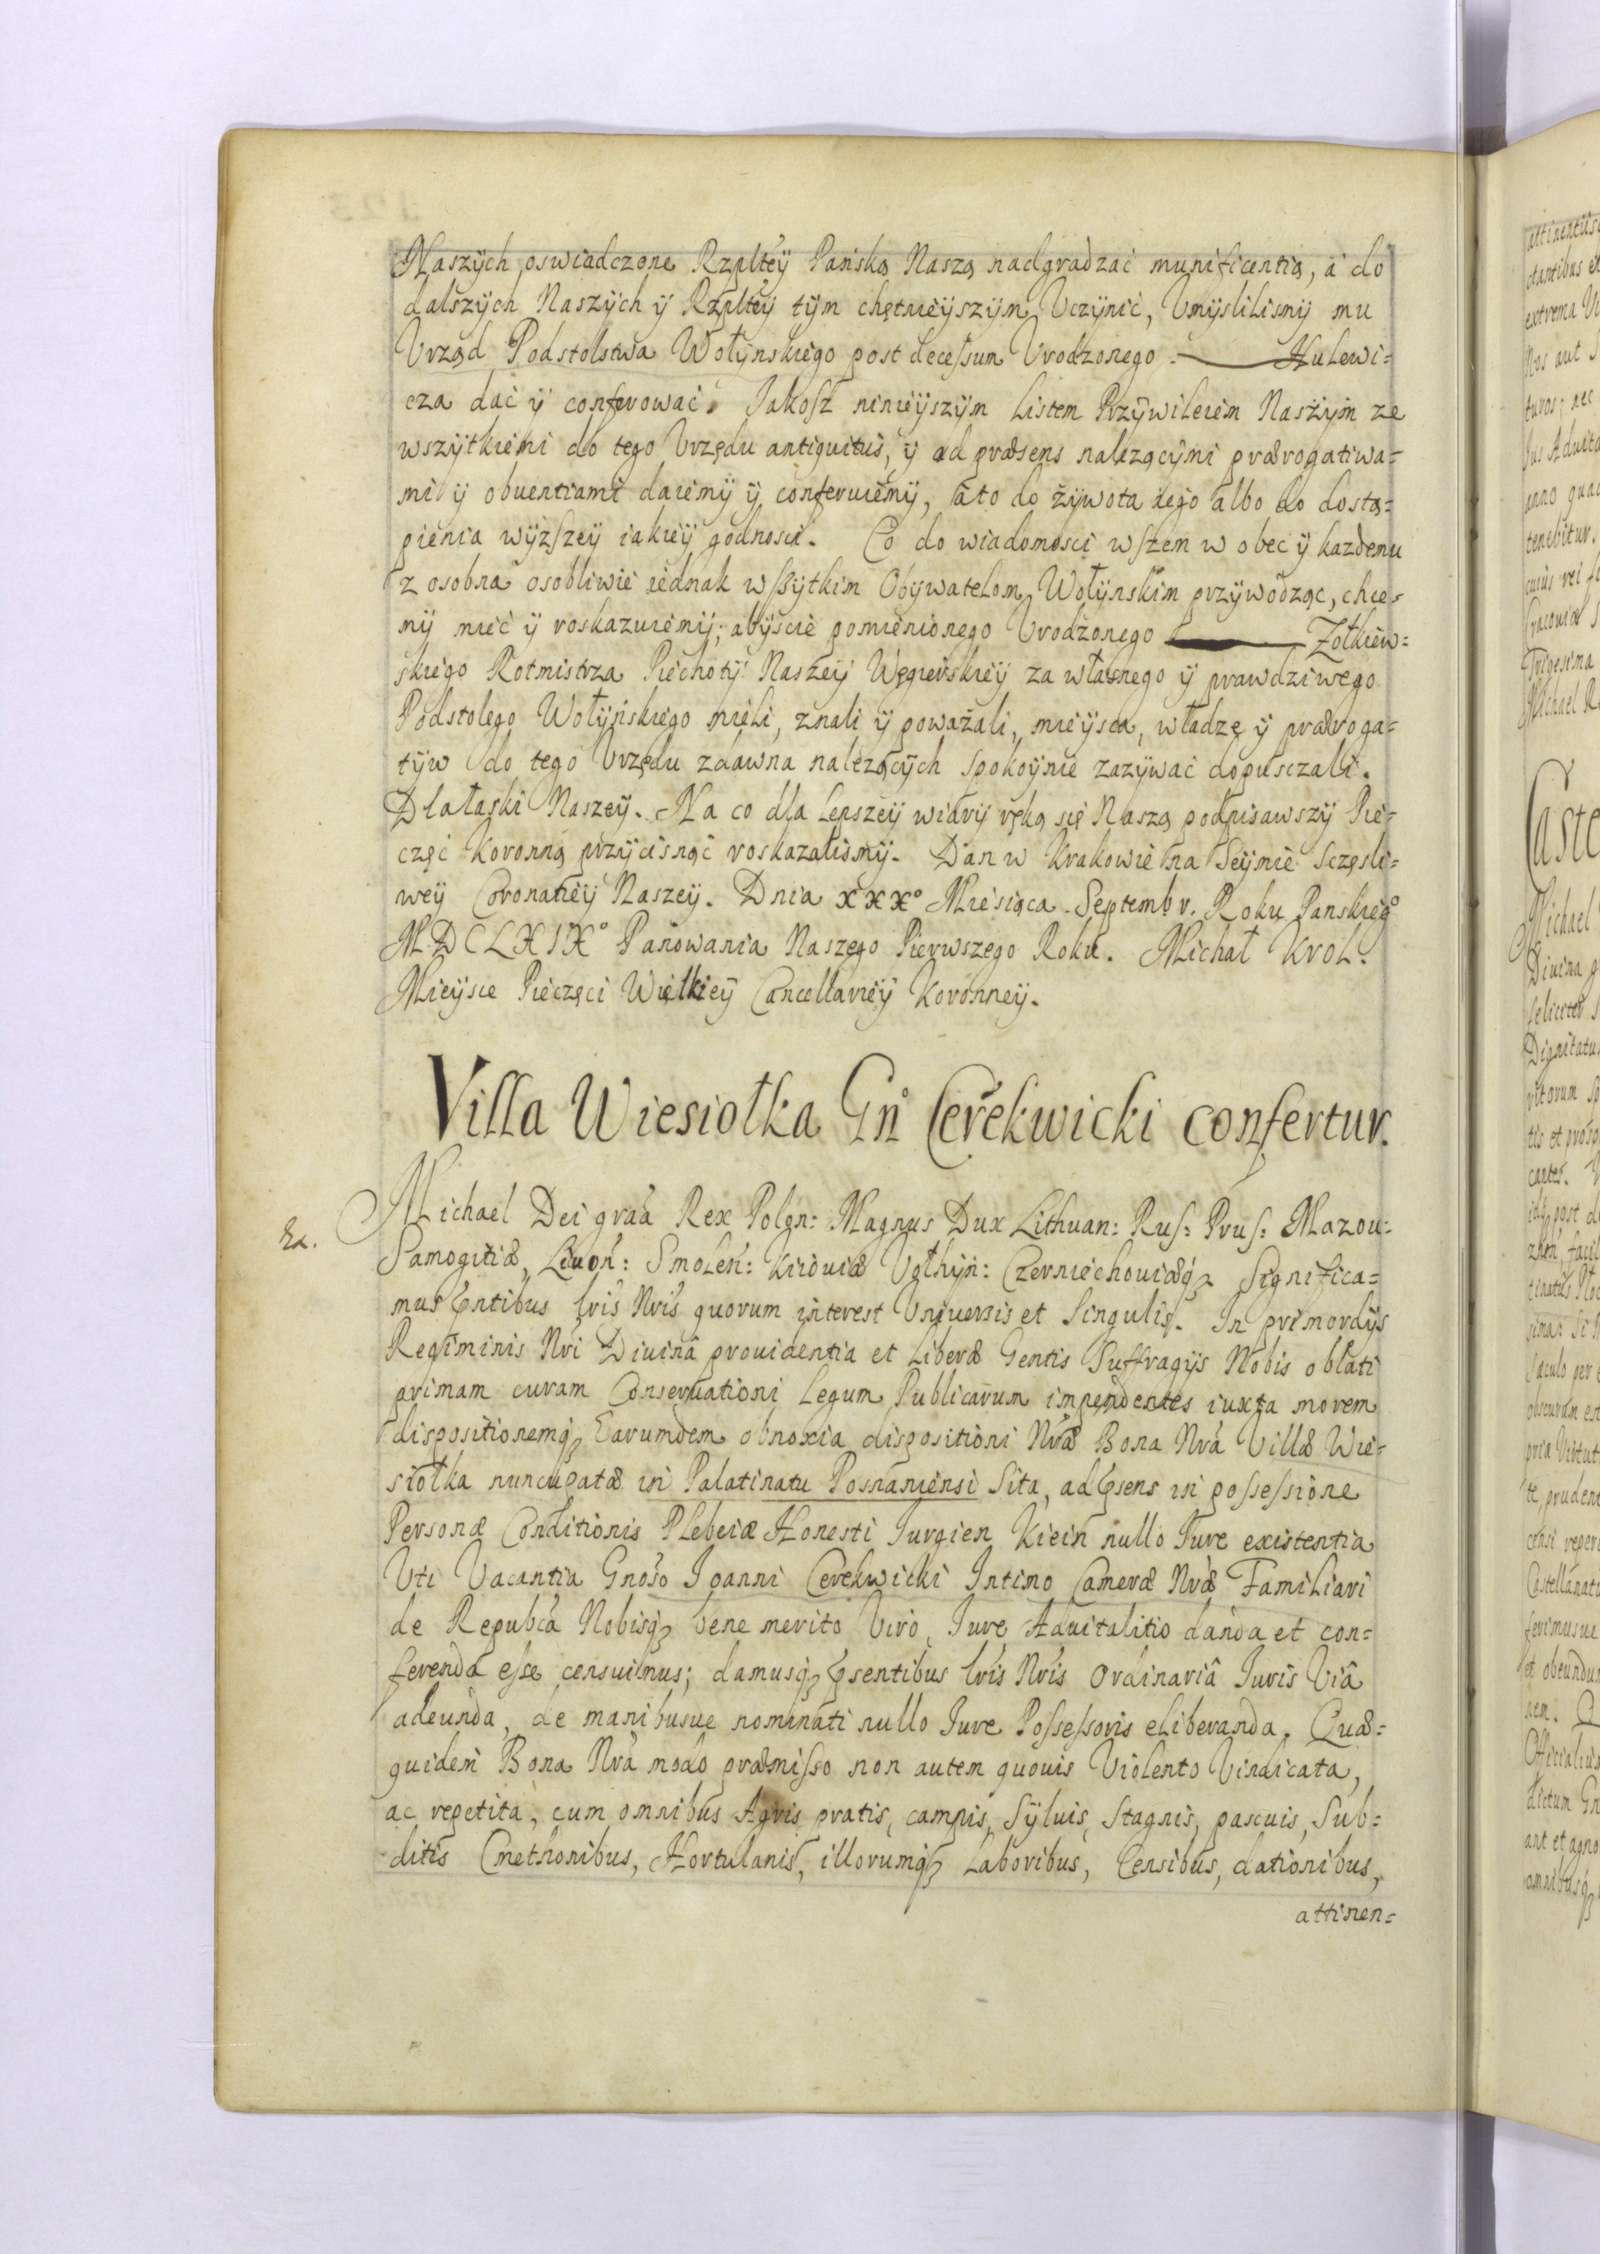 Naszych oswiadczone Rzpltey Pańską Naszą nadgradzać munificentią, á do
dalszych Naszych y Rzpltey tym chętnieyszym Uczynić, Umyslilismy mu
Vrząd Podstolstwa Wołynskiego post decessum Vrodzonego ——— Hulewi=
cza dać y conferować. Jakosz ninieyszym Listem Przywileiem Naszym ze
wszytkiemi do tego Vrzędu antiquitus, y ad præsens nalezącymi prærogatiwa=
mi y obventiami daiemy y conferuiemy, áto do żywota iego albo do dostą=
pienia wyższey iakiey godnosci. Co do wiadomosci wszem w obec y kazdemu
z osobna osobliwie iednak wszytkim Obywatelom Wołynskim przywodząc, chce=
my mieć y roskazuiemy; abyście pomienionego Vrodzonego ——— Zołkiew=
skiego Rotmistrza Piechoty Naszey Węgierskiey za własnego y prawdziwego
Podstolego Wołyńskiego mieli, znali y poważali, mieysca, władzę y præroga=
tyw do tego Vrzędu zdawna nalezących spokoynie zazywać dopusczali.
Dla łaski Naszey. Na co dla lepszey wiary ręką się Naszą podpisawszy Pie=
częć Koronną przycisnąć roskazalismy. Dan w Krakowie na Seymie Sczęsli=
wey Coronatiey Naszey. Dnia XXX° Miesiąca Septembr. Roku Panskieg°
MDCLXIX° Panowania Naszego Pierwszego Roku. Michał Krol.
Mieysce Pieczęci Wielkiey Cancellariey Koronney.
Villa Wiesiołka Gn° Cerekwicki confertur.
Ex.
Michael Dei gráa Rex Polon: Magnus Dux Lithuan: Rus: Prus: Mazou:
Samogitiæ, Liuon: Smolen: Kiiouiæ Volhyn: Czerniechouiæq3 Significa=
mus Pntibus lris Nris quorum interest Vniuersis et Singulis. In primordijs
Regiminis Nri Diuinâ prouidentia et Liberæ Gentis Suffragijs Nobis oblati
primam curam Conseruationi Legum Publicarum impendentes iuxta morem
dispositionemq3 Earumdem obnoxia dispositioni Nræ Bona Nrá Villæ Wie=
siołka nuncupatæ in Palatinatu Posnaniensi Sita, ad Psens in possessione
Personæ Conditionis Plebeiæ Honesti Jurgien Kiein nullo Jure existentia
Vti Vacantia Gnoso Joanni Cerekwicki Intimo Cameræ Nræ Familiari
de Republca Nobisq3 bene merito Viro, Jure Aduitalitio danda et con=
ferenda esse censuimus; damusq3 Psentibus lris Nris Ordinariâ Juris Viâ
adeunda, de manibusue nominati nullo Jure Possessoris eliberanda. Quæ=
quidem Bona Nrá modo præmisso non autem quouis Violento Vindicata,
ac repetita, cum omnibus Agris pratis, campis, Syluis, Stagnis, pascuis, Sub=
ditis Cmethonibus, Hortulanis, illorumq3 Laboribus, Censibus, dationibus,
attinen=